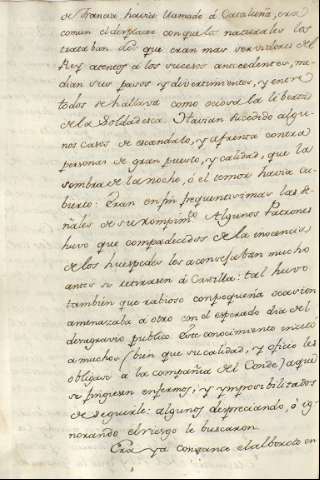 de Francia havia llamado á Cataluña, era
comun el desplacer con que los naturales los
trataban los que eran mas servidores del
Rey atentos á los sucesos antecedentes, me-
dian sus pasos y divertimientos, y entre
todos se hallava como ociosa la libertad
de la Soldadesca. Havian sucedido algu-
nos casos de escandalo, y afrenta contra
personas de gran puesto, y calidad, que la
sombra de la noche, ó el temor havia cu-
bierto: Eran en fin frequentisimas las se-
ñales de su rompim.to Algunos Patrones
huvo que compadecidos de la inocencia
de los huespedes los aconsejaban mucho
antes se retirasen á Castilla: tal huvo
tambien que rabioso con pequeña ocasion
amenazaba a otro con el esperado dia del
desagravio publico Este conocimiento incitó
a muchos (bien que su calidad, y oficio les
obligase a la compañia del Conde) a que
se fingiesen enfermos, y ymposibilitados
de seguirle: algunos despreciando, ó ig-
norando el riesgo le buscaron.
Era ya constante el alboroto en